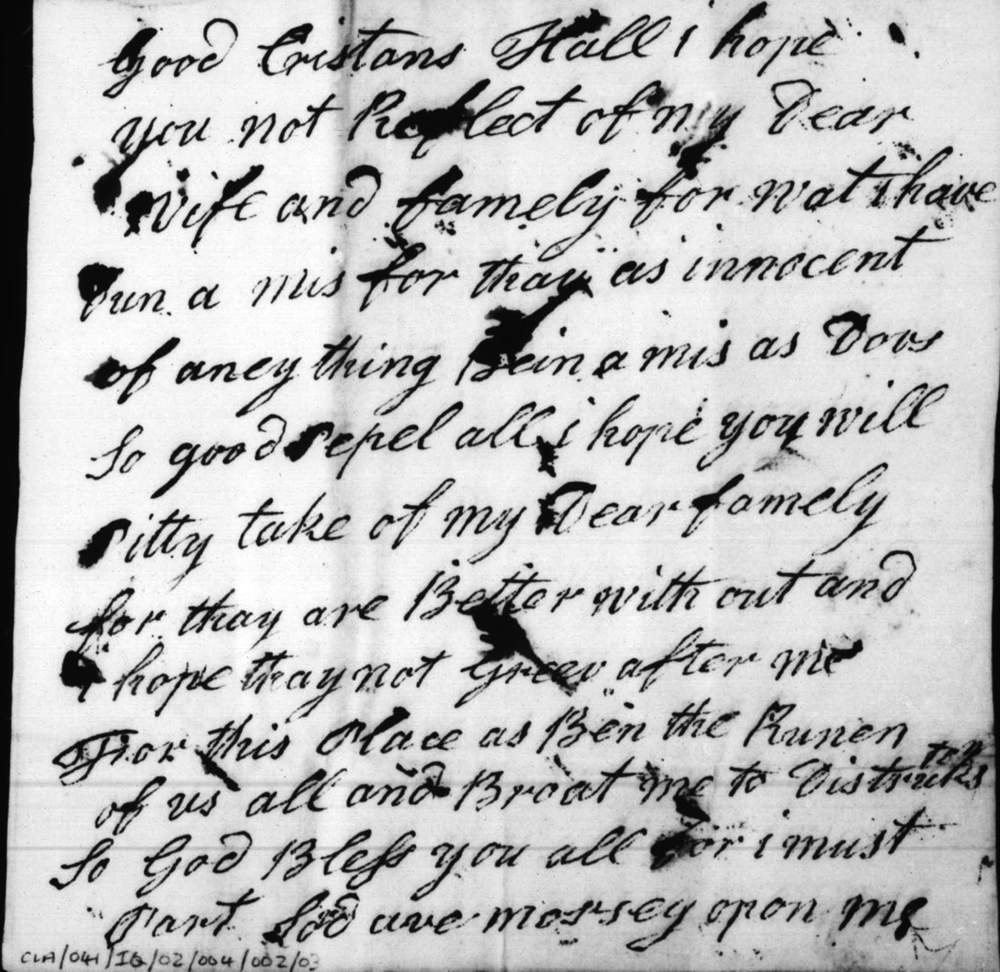 Good Cristans Hall i hope
you not Reflect of my Dear
Wife and famely for wat i have
Dun a mis for thay as innocent
of aney thing Bein a mis as Dovs
So good Pepel all i hope you will
Pitty take of my Dear famely
for thay are Better with out and
i hope thay not Greev after me
For this Place as Ben the Runen
of us all and Broat me to
So God Bless you all for i must
Part God ave morsey opon me
CLA/041/IQ/02/004/002/03